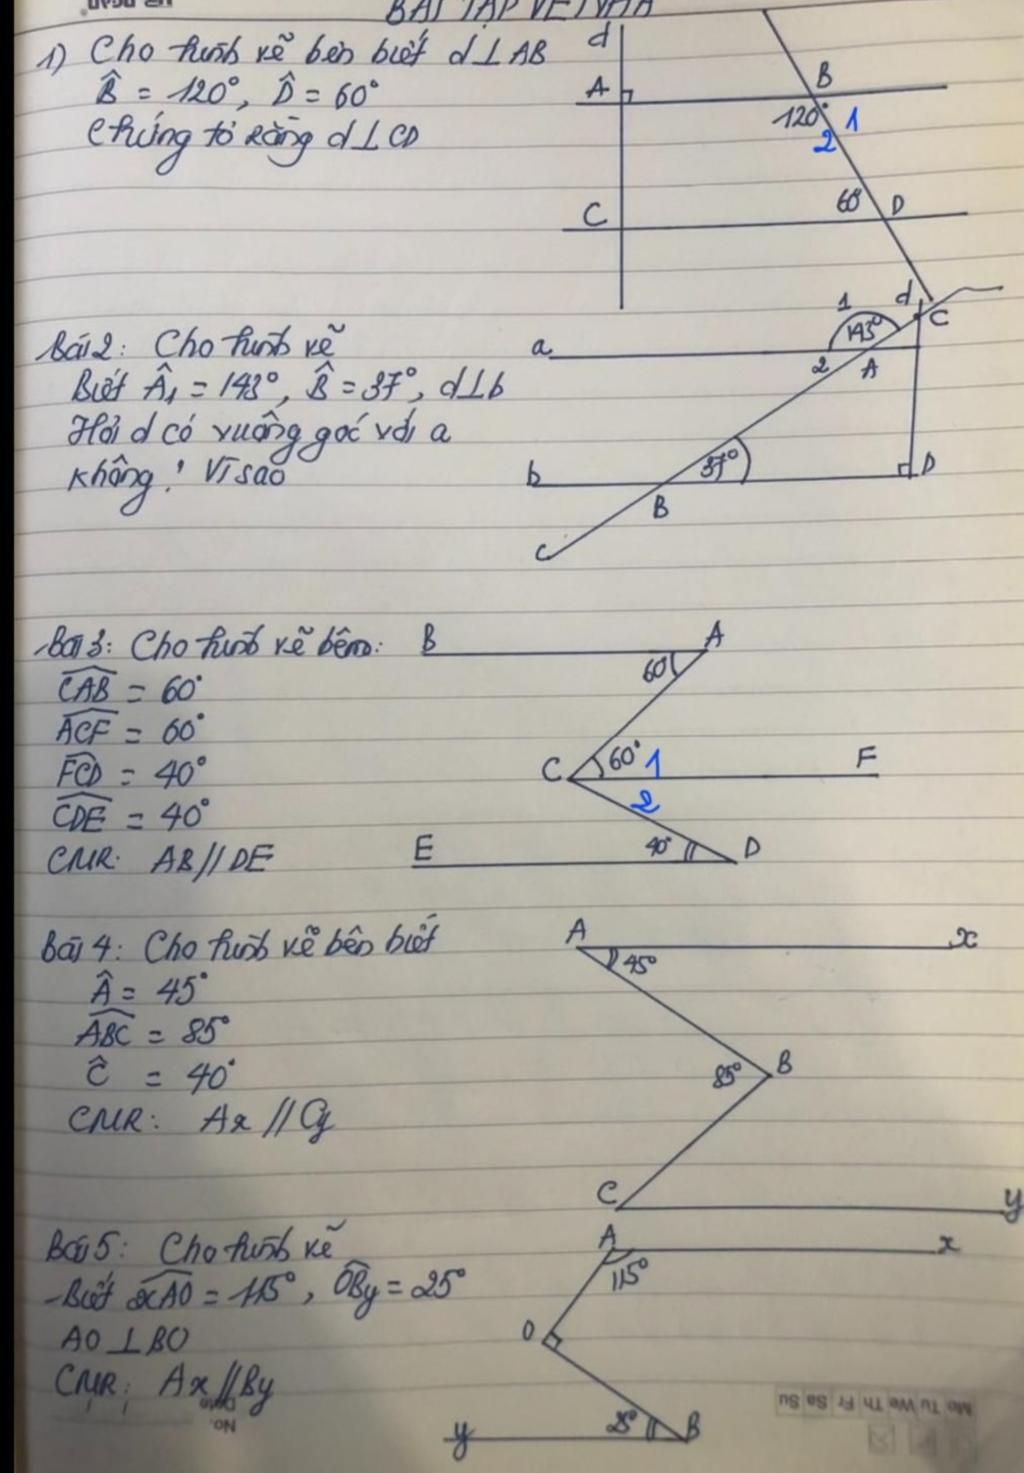 BÀI TẬP VỀ NHÀ
1) Cho hình vẽ bên biết d⊥AB
B̂ = 120°, D̂ = 60°
Chứng tỏ rằng d⊥CD
d
A
B
120°
1
2
C
60°
D
Bài 2: Cho hình vẽ
Biết Â₁ = 143°, B̂ = 37°, d⊥b
Hỏi d có vuông góc với a
không? Vì sao
1
d
C
143°
a
2
A
37°
b
D
B
C
Bài 3: Cho hình vẽ bên:
CAB = 60°
ACF = 60°
FCD = 40°
CDE = 40°
CMR: AB//DE
B
A
60
C
60°
1
F
2
E
40°
D
Bài 4: Cho hình vẽ bên biết
Â = 45°
ABC = 85°
Ĉ = 40°
CMR: Ax // Cy
A
x
45°
85°
B
C
y
Bài 5: Cho hình vẽ
Biết xAO = 115°, OBy = 25°
AO ⊥ BO
CMR: Ax // By
A
x
115°
O
25°
y
B
No.
Date
Mo Tu We Th Fr Sa Su